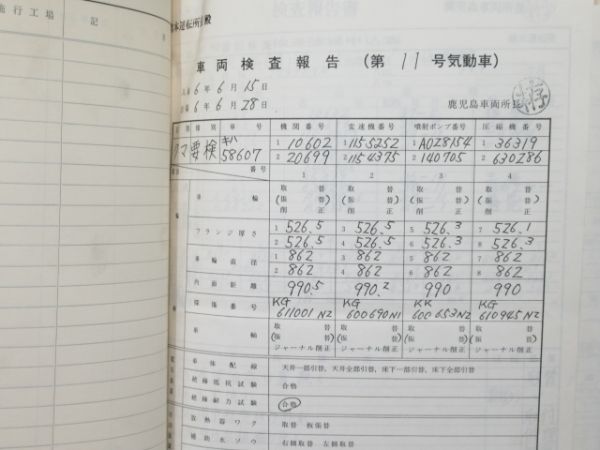 施行工場 記 番
本運転所長殿
車両検査報告 (第 11 号気動車)
6年 6月 15日
6年 6月 28日
鹿児島車両所長
種別 車号 機関番号 変速機番号 噴射ポンプ番号 圧縮機番号
クマ 要検 キハ 58607 1 10602 1 1155252 1 A0Z8154 1 36319
2 20699 2 1154375 2 140705 2 630286
番号 1 2 3 4
車輪 取替 (振替) 削正 取替 (振替) 削正 取替 (振替) 削正 取替 (振替) 削正
フランジ厚さ 1 526.5 3 526.5 5 526.3 7 526.1
2 526.5 4 526.5 6 526.3 8 526.3
車輪直径 1 862 3 862 5 862 7 862
2 862 4 862 6 862 8 862
内面距離 990.5 990.2 990 990
番号 KG 611001 N2 KG 600690 N1 KK 600653 N2 KG 610945 N2
車軸 取替 (振替) ジャーナル削正 取替 (振替) ジャーナル削正 取替 (振替) ジャーナル削正 取替 (振替) ジャーナル削正
車体配線 天井一部引替, 天井全部引替, 床下一部引替, 床下全部引替
絶縁抵抗試験 合格
絶縁耐力試験 合格
放熱器ワク 取替 板張替
補助水ソウ 右側取替 左側取替